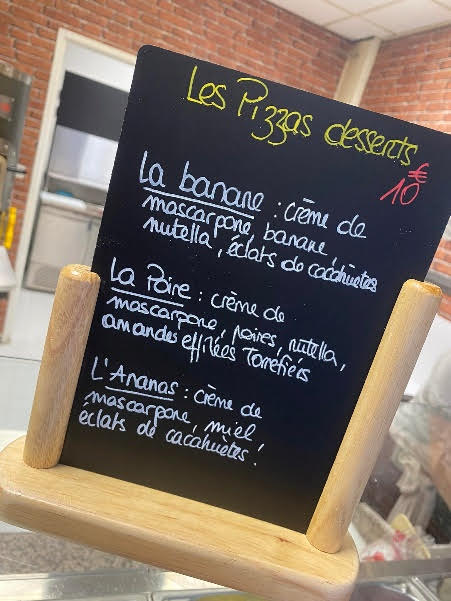 Les Pizzas desserts
10€
La banane : crème de
mascarpone, banane,
nutella, éclats de cacahuètes
La Poire : crème de
mascarpone, poires, nutella,
amandes effilées Torréfiés
L'Ananas : crème de
mascarpone, miel,
éclats de cacahuètes.